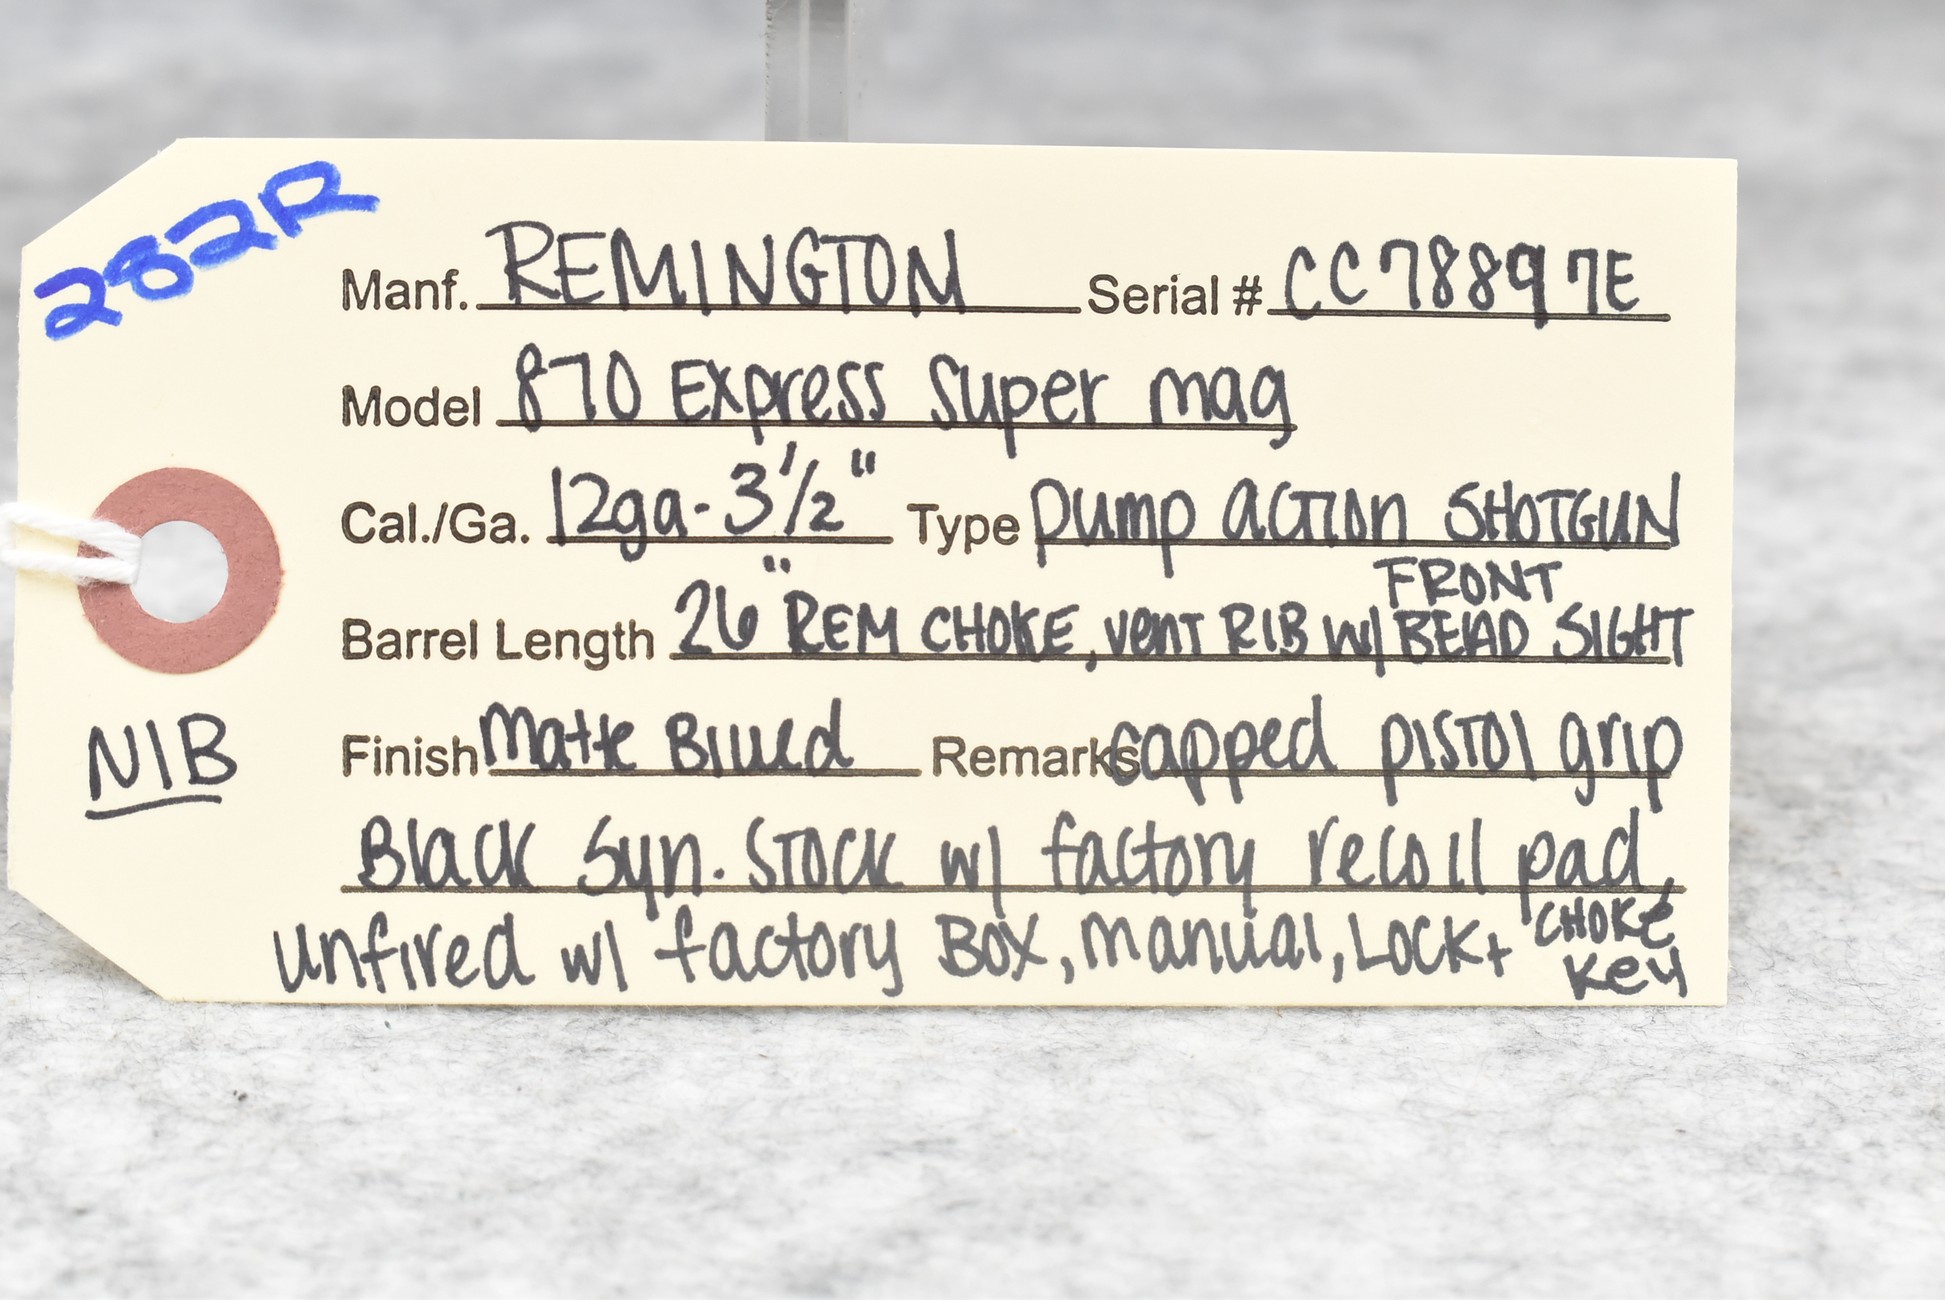 282R
Manf. REMINGTON Serial # CC78897E
Model 870 Express Super mag
Cal./Ga. 12ga - 3 1/2" Type pump action SHOTGUN
Barrel Length 26" REM CHOKE, vent RIB w/ FRONT BEAD SIGHT
Finish Matte Blued Remarks capped pistol grip
NIB
Black Syn. Stock w/ factory recoil pad,
unfired w/ factory Box, manual, Lock + CHOKE Key